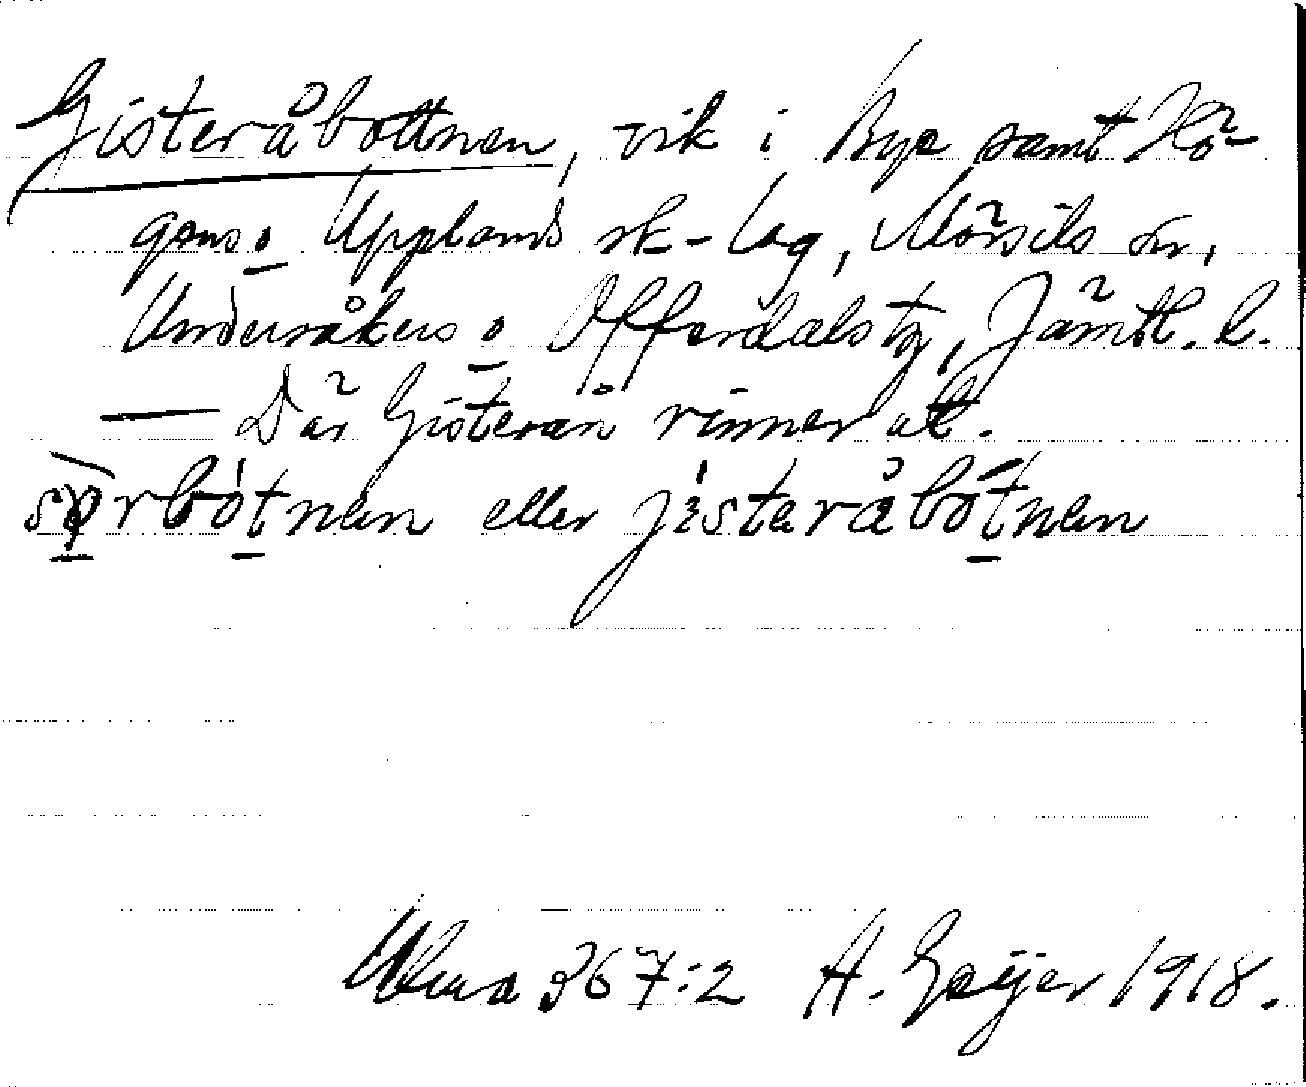 Gisteråbottnen, vik i Bye samt Hö-
gens o Upplands sk-lag, Mörsils sn,
Undersåkers o Offerdals tg, Jämtl. l.
— Där Gisterån rinner ut.
sørbòtnen eller jisteråbòtnen
Ulma 367:2 A. Geijer 1918.